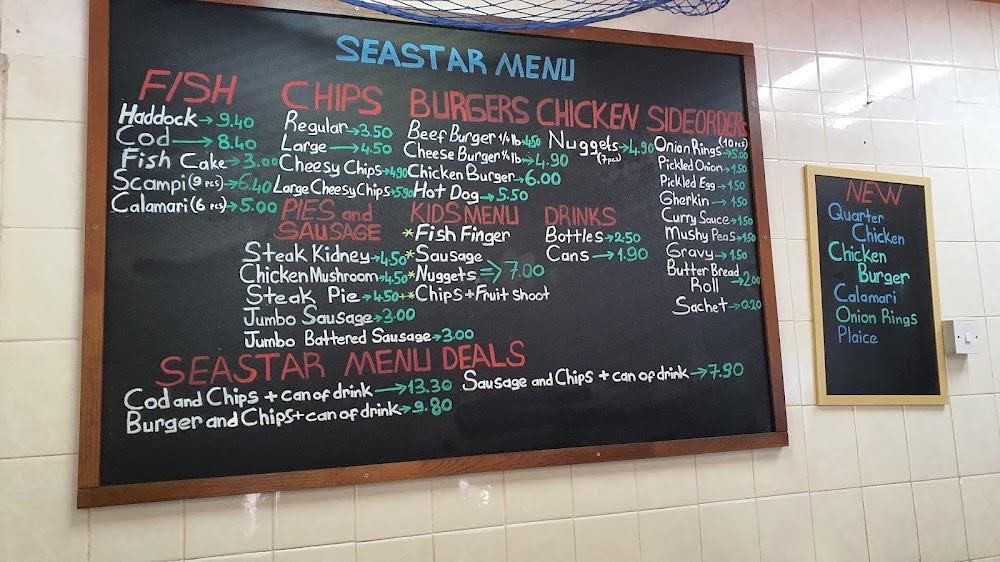 SEASTAR MENU
FISH
Haddock → 9.40
Cod → 8.40
Fish Cake → 3.00
Scampi (9 pcs) → 6.40
Calamari (6 pcs) → 5.00
CHIPS
Regular → 3.50
Large → 4.50
Cheesy Chips → 4.90
Large Cheesy Chips → 5.90
BURGERS
Beef Burger 1/4 lb → 4.50
Cheese Burger 1/4 lb → 4.90
Chicken Burger → 6.00
Hot Dog → 5.50
CHICKEN
Nuggets → 4.90
(7 pcs)
SIDEORDERS
(10 pcs)
Onion Rings → 5.00
Pickled Onion → 1.50
Pickled Egg → 1.50
Gherkin → 1.50
Curry Sauce → 1.50
Mushy Peas → 1.50
Gravy → 1.50
Butter Bread
Roll → 2.00
Sachet → 0.20
PIES and
SAUSAGE
Steak Kidney → 4.50
Chicken Mushroom → 4.50
Steak Pie → 4.50
Jumbo Sausage → 3.00
Jumbo Battered Sausage → 3.00
KIDS MENU
* Fish Finger
* Sausage
* Nuggets ⇒ 7.00
+* Chips + Fruit Shoot
DRINKS
Bottles → 2.50
Cans → 1.90
SEASTAR MENU DEALS
Cod and Chips + can of drink → 13.30
Burger and Chips + can of drink → 9.80
Sausage and Chips + can of drink → 7.90
NEW
Quarter
Chicken
Chicken
Burger
Calamari
Onion Rings
Plaice